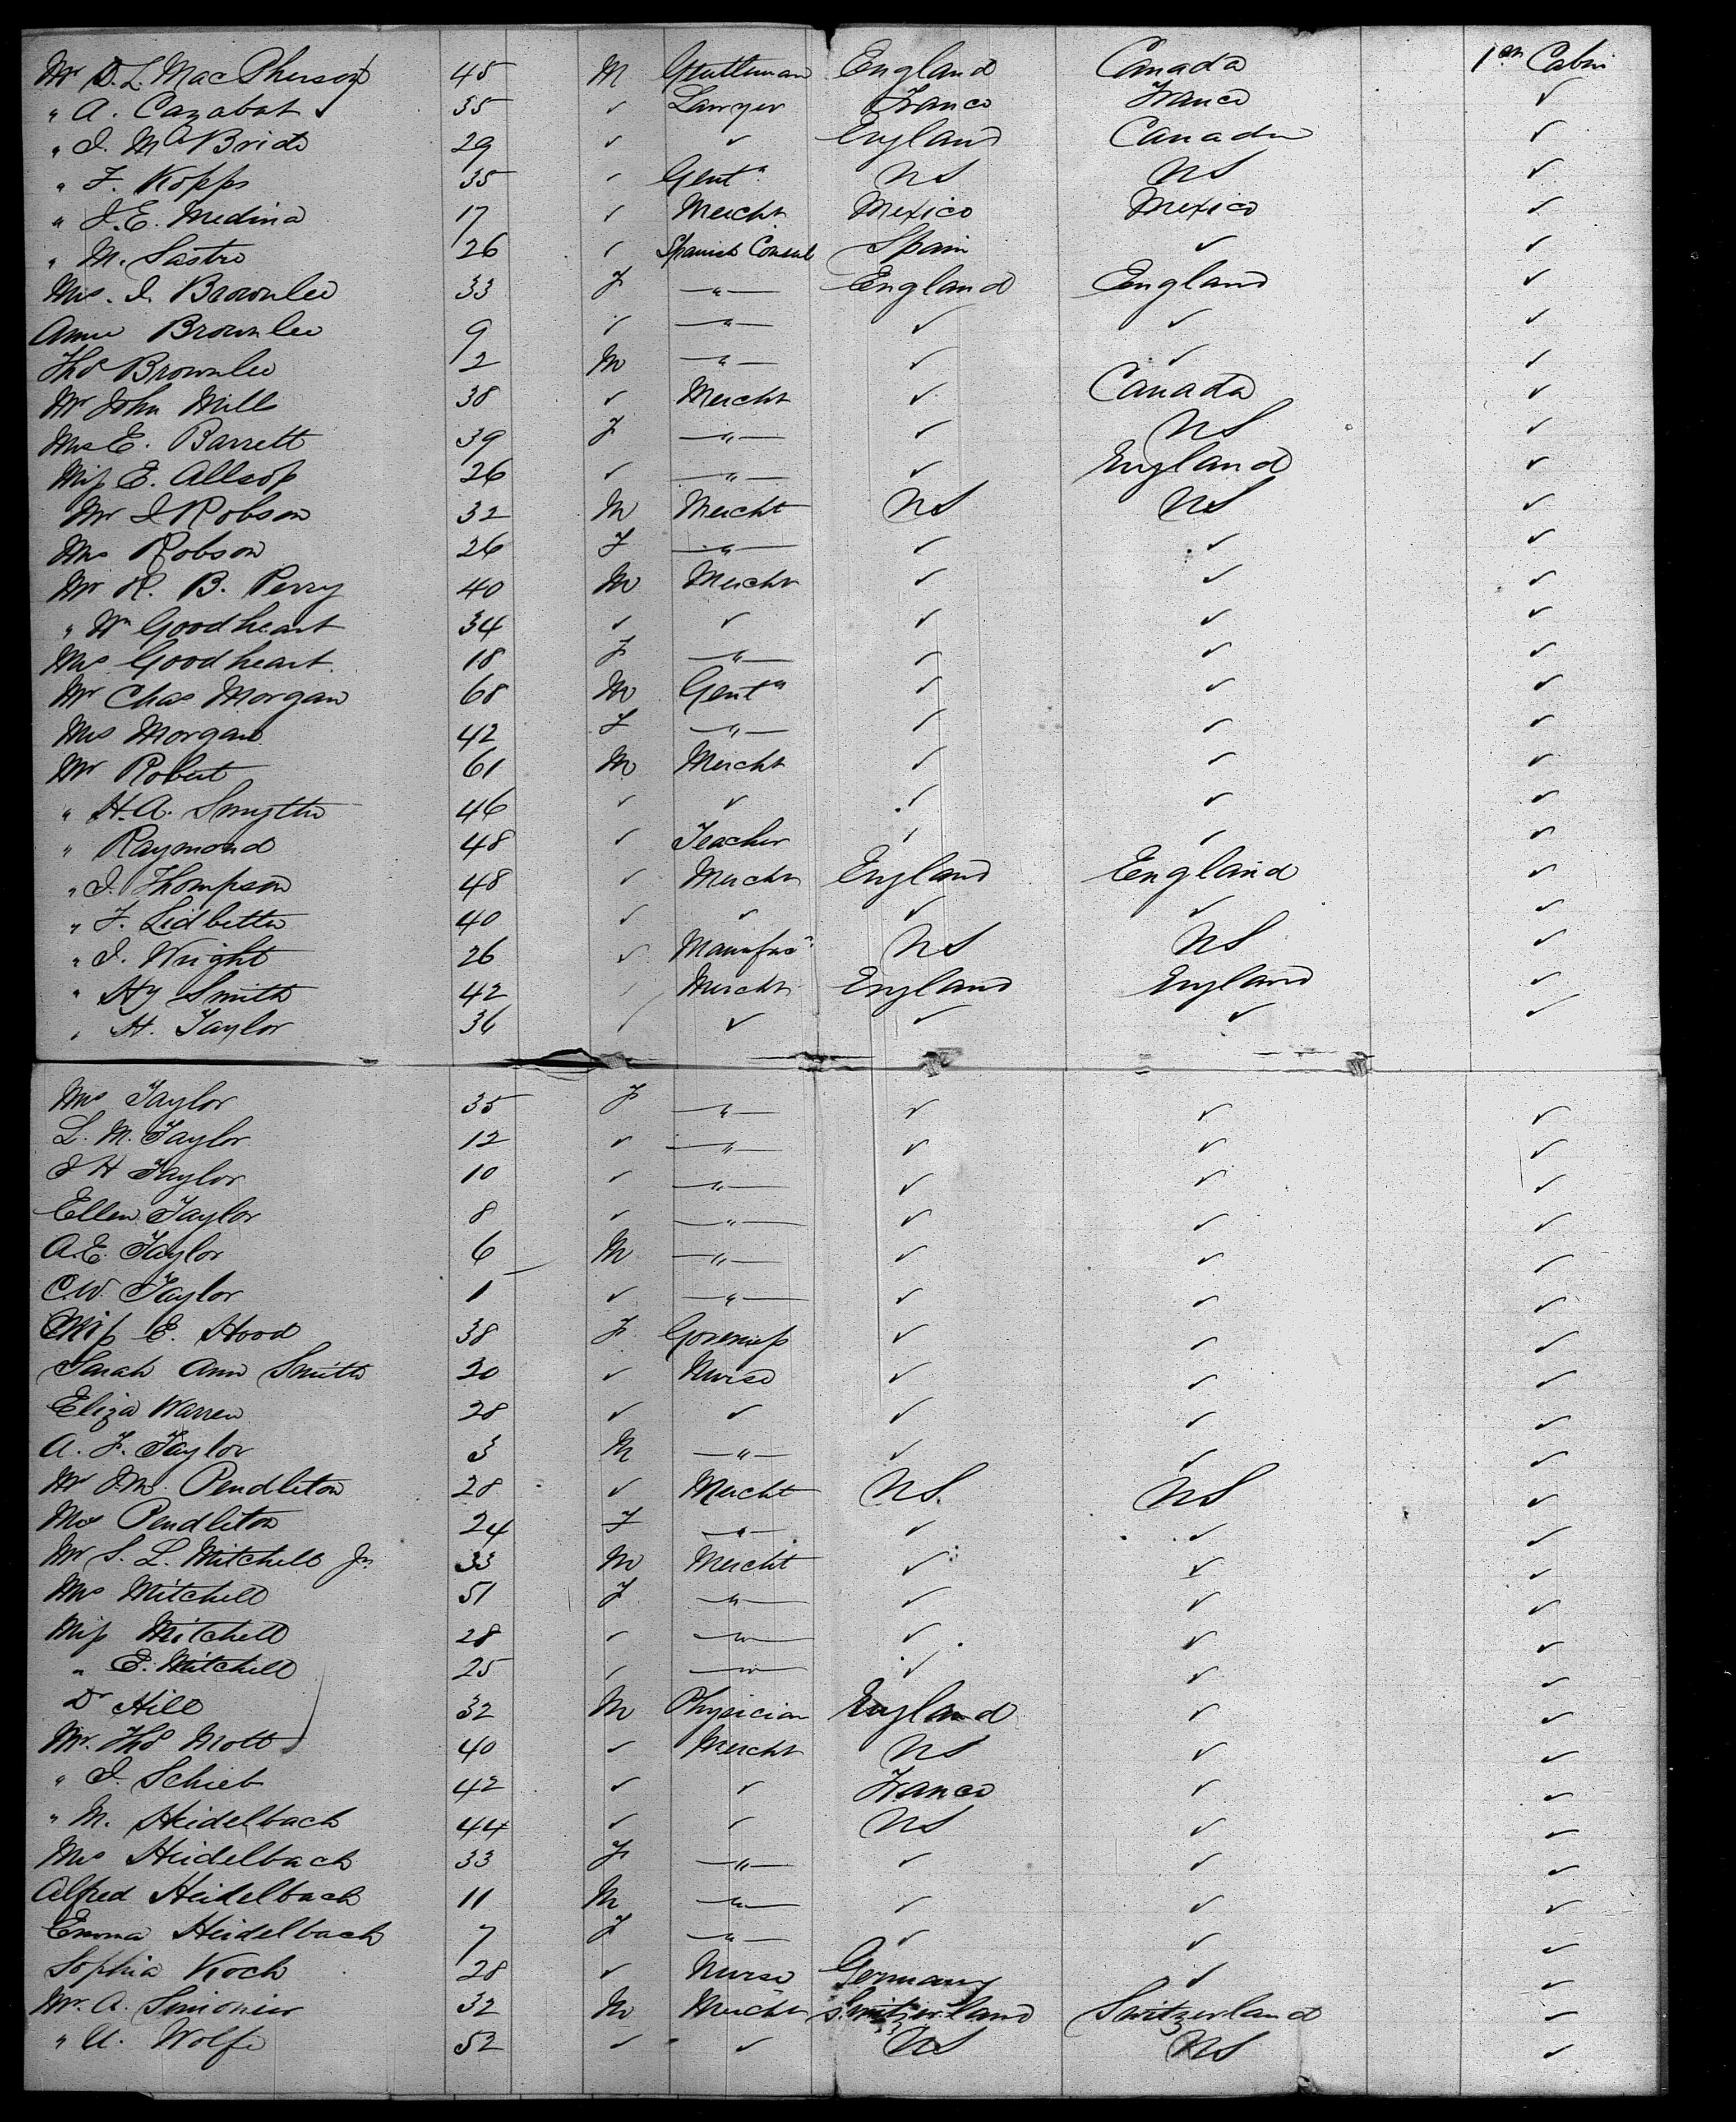 Mr D. L. MacPherson 45 M Gentleman England Canada 1st Cabin
" A. Cazabat 35 ✓ Lawyer France France ✓
" J. McBride 29 ✓ ✓ England Canada ✓
" F. Kopps 35 ✓ Gentn US US ✓
" J. E. Medina 17 ✓ Mercht Mexico Mexico ✓
" M. Sastre 26 ✓ Spanish Consul Spain ✓ ✓
Mrs. J. Brownlee 33 F —"— England England ✓
Annie Brownlee 9 ✓ —"— ✓ ✓ ✓
Thos Brownlee 2 M —"— ✓ ✓ ✓
Mr John Mills 38 ✓ Mercht ✓ Canada ✓
Mrs E. Barrett 39 F —"— ✓ US ✓
Miss E. Allsop 26 ✓ —"— ✓ England ✓
Mr J Robson 32 M Mercht US US ✓
Mrs Robson 26 F —"— ✓ ✓ ✓
Mr R. B. Perry 40 M Mercht ✓ ✓ ✓
" Wm Goodheart 34 ✓ ✓ ✓ ✓ ✓
Mrs Goodheart 18 F —"— ✓ ✓ ✓
Mr Chas Morgan 68 M Gentn ✓ ✓ ✓
Mrs Morgan 42 F —"— ✓ ✓ ✓
Mr Robert 61 M Mercht ✓ ✓ ✓
" H. A. Smythe 46 ✓ ✓ ✓ ✓ ✓
" Raymond 48 ✓ Teacher ✓ ✓ ✓
" J. Thompson 48 ✓ Mercht England England ✓
" F. Lidbetter 40 ✓ ✓ ✓ ✓ ✓
" J. Wright 26 ✓ Manufr US US ✓
" Hy Smith 42 ✓ Mercht England England ✓
" H. Taylor 36 ✓ ✓ ✓ ✓ ✓
Mrs Taylor 35 F —"— ✓ ✓ ✓
L. M. Taylor 12 ✓ —"— ✓ ✓ ✓
J H Taylor 10 ✓ —"— ✓ ✓ ✓
Ellen Taylor 8 ✓ —"— ✓ ✓ ✓
A. E. Taylor 6 M —"— ✓ ✓ ✓
C. W. Taylor 1 ✓ —"— ✓ ✓ ✓
Miss E. Hood 38 F Governess ✓ ✓ ✓
Sarah Ann Smith 20 ✓ Nurse ✓ ✓ ✓
Eliza Warren 28 ✓ ✓ ✓ ✓ ✓
A. F. Taylor 3 M —"— ✓ ✓ ✓
Mr J. M. Pendleton 28 ✓ Mercht US. US ✓
Mrs Pendleton 24 F —"— ✓ ✓ ✓
Mr S. L. Mitchell Jr. 33 M Mercht ✓ ✓ ✓
Mrs Mitchell 51 F —"— ✓ ✓ ✓
Miss Mitchell 28 ✓ —"— ✓ ✓ ✓
" E. Mitchell 25 ✓ —"— ✓ ✓ ✓
Dr Hill 32 M Physician England ✓ ✓
Mr. Thos Mott 40 ✓ Mercht US ✓ ✓
" J. Schieb 42 ✓ ✓ France ✓ ✓
" M. Heidelbach 44 ✓ ✓ US ✓ ✓
Mrs Heidelbach 33 F —"— ✓ ✓ ✓
Alfred Heidelbach 11 M —"— ✓ ✓ ✓
Emma Heidelbach 7 F —"— ✓ ✓ ✓
Sophia Koch 28 ✓ Nurse Germany ✓ ✓
Mr. A. Simonier 32 M Mercht Switzerland Switzerland ✓
" U. Wolfe 52 ✓ ✓ US US ✓